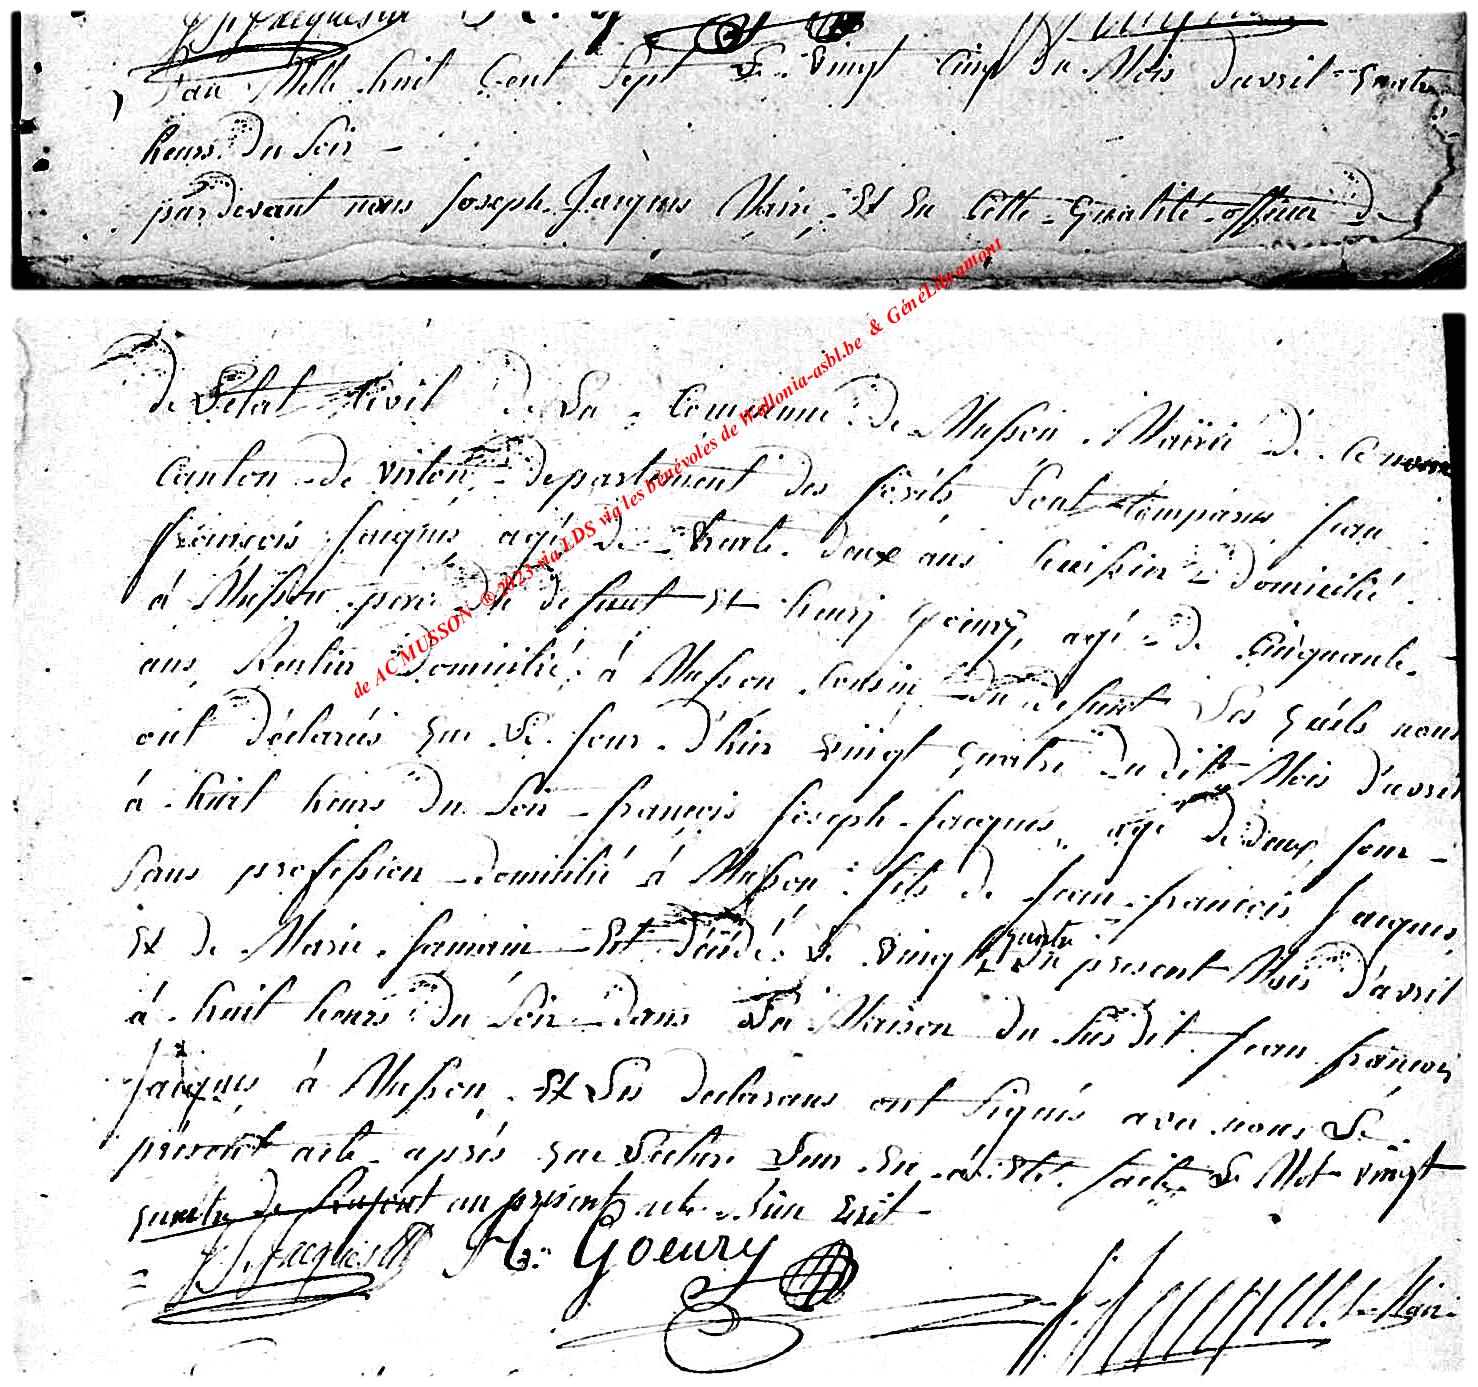 L'an Mille huit Cent Sept Le vingt Cinq du Mois davril quatre
heurs du Soir -
pardevant nous Joseph Jacques Maire Et En Cette qualité officier d
de Letat Civil de La Commune de Musson Mairie de Ce nom
Canton de virton departement des forêts Sont Comparus Jean
françois Jacques agé de trente deux ans Domicilié
à Musson pere du defunt Et henry Goeury, agé de Cinquante
ans, Domicilié à Musson Cousin du defunt Les quels nous
ont déclarés que Le Jour d'hier vingt quatre du dit Mois d'avril
à huit heurs du Soir françois Joseph Jacques agé de deux Jour -
Sans profession domicilié à Musson fils de Jean françois Jacques
Et de Marie Est décédé Le vingt quatre du present Mois d'avril
à huit heurs du Soir dans La Maison du Susdit Jean françois
Jacques à Musson Et Les declarans ont Signés avec nous Le
présent acte après que Lecture Leur En a été faite Le Mot vingt
quatre au présent acte
J f Jacques H. Goeury J Jacques Le Maire
de ACMUSSON ®2023 via LDS via les bénévoles de Wallonia-asbl.be & GénéLibramont